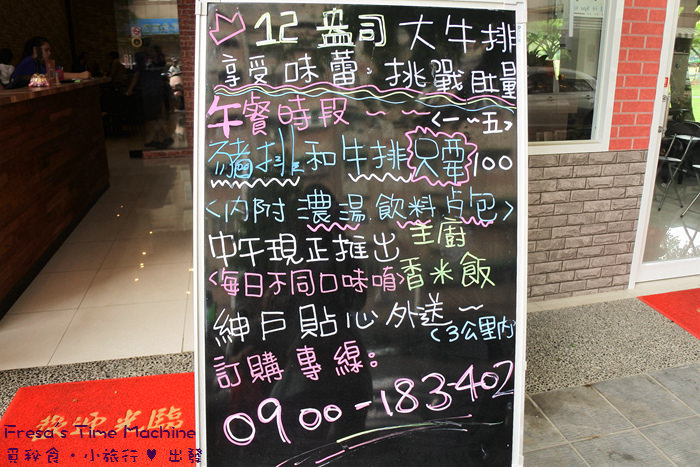 12 盎司 大牛排
享受味蕾,挑戰肚量
午餐時段～～<一~五>
豬排和牛排只要100
<內附濃湯.飲料.占包>
中午現正推出 主廚
<每日不同口味唷> 香米飯
紳戶貼心外送～
(3公里內
訂購專線:
0900-183-402
歡迎光臨
Fresa's Time Machine
買穀食・小旅行♥出發